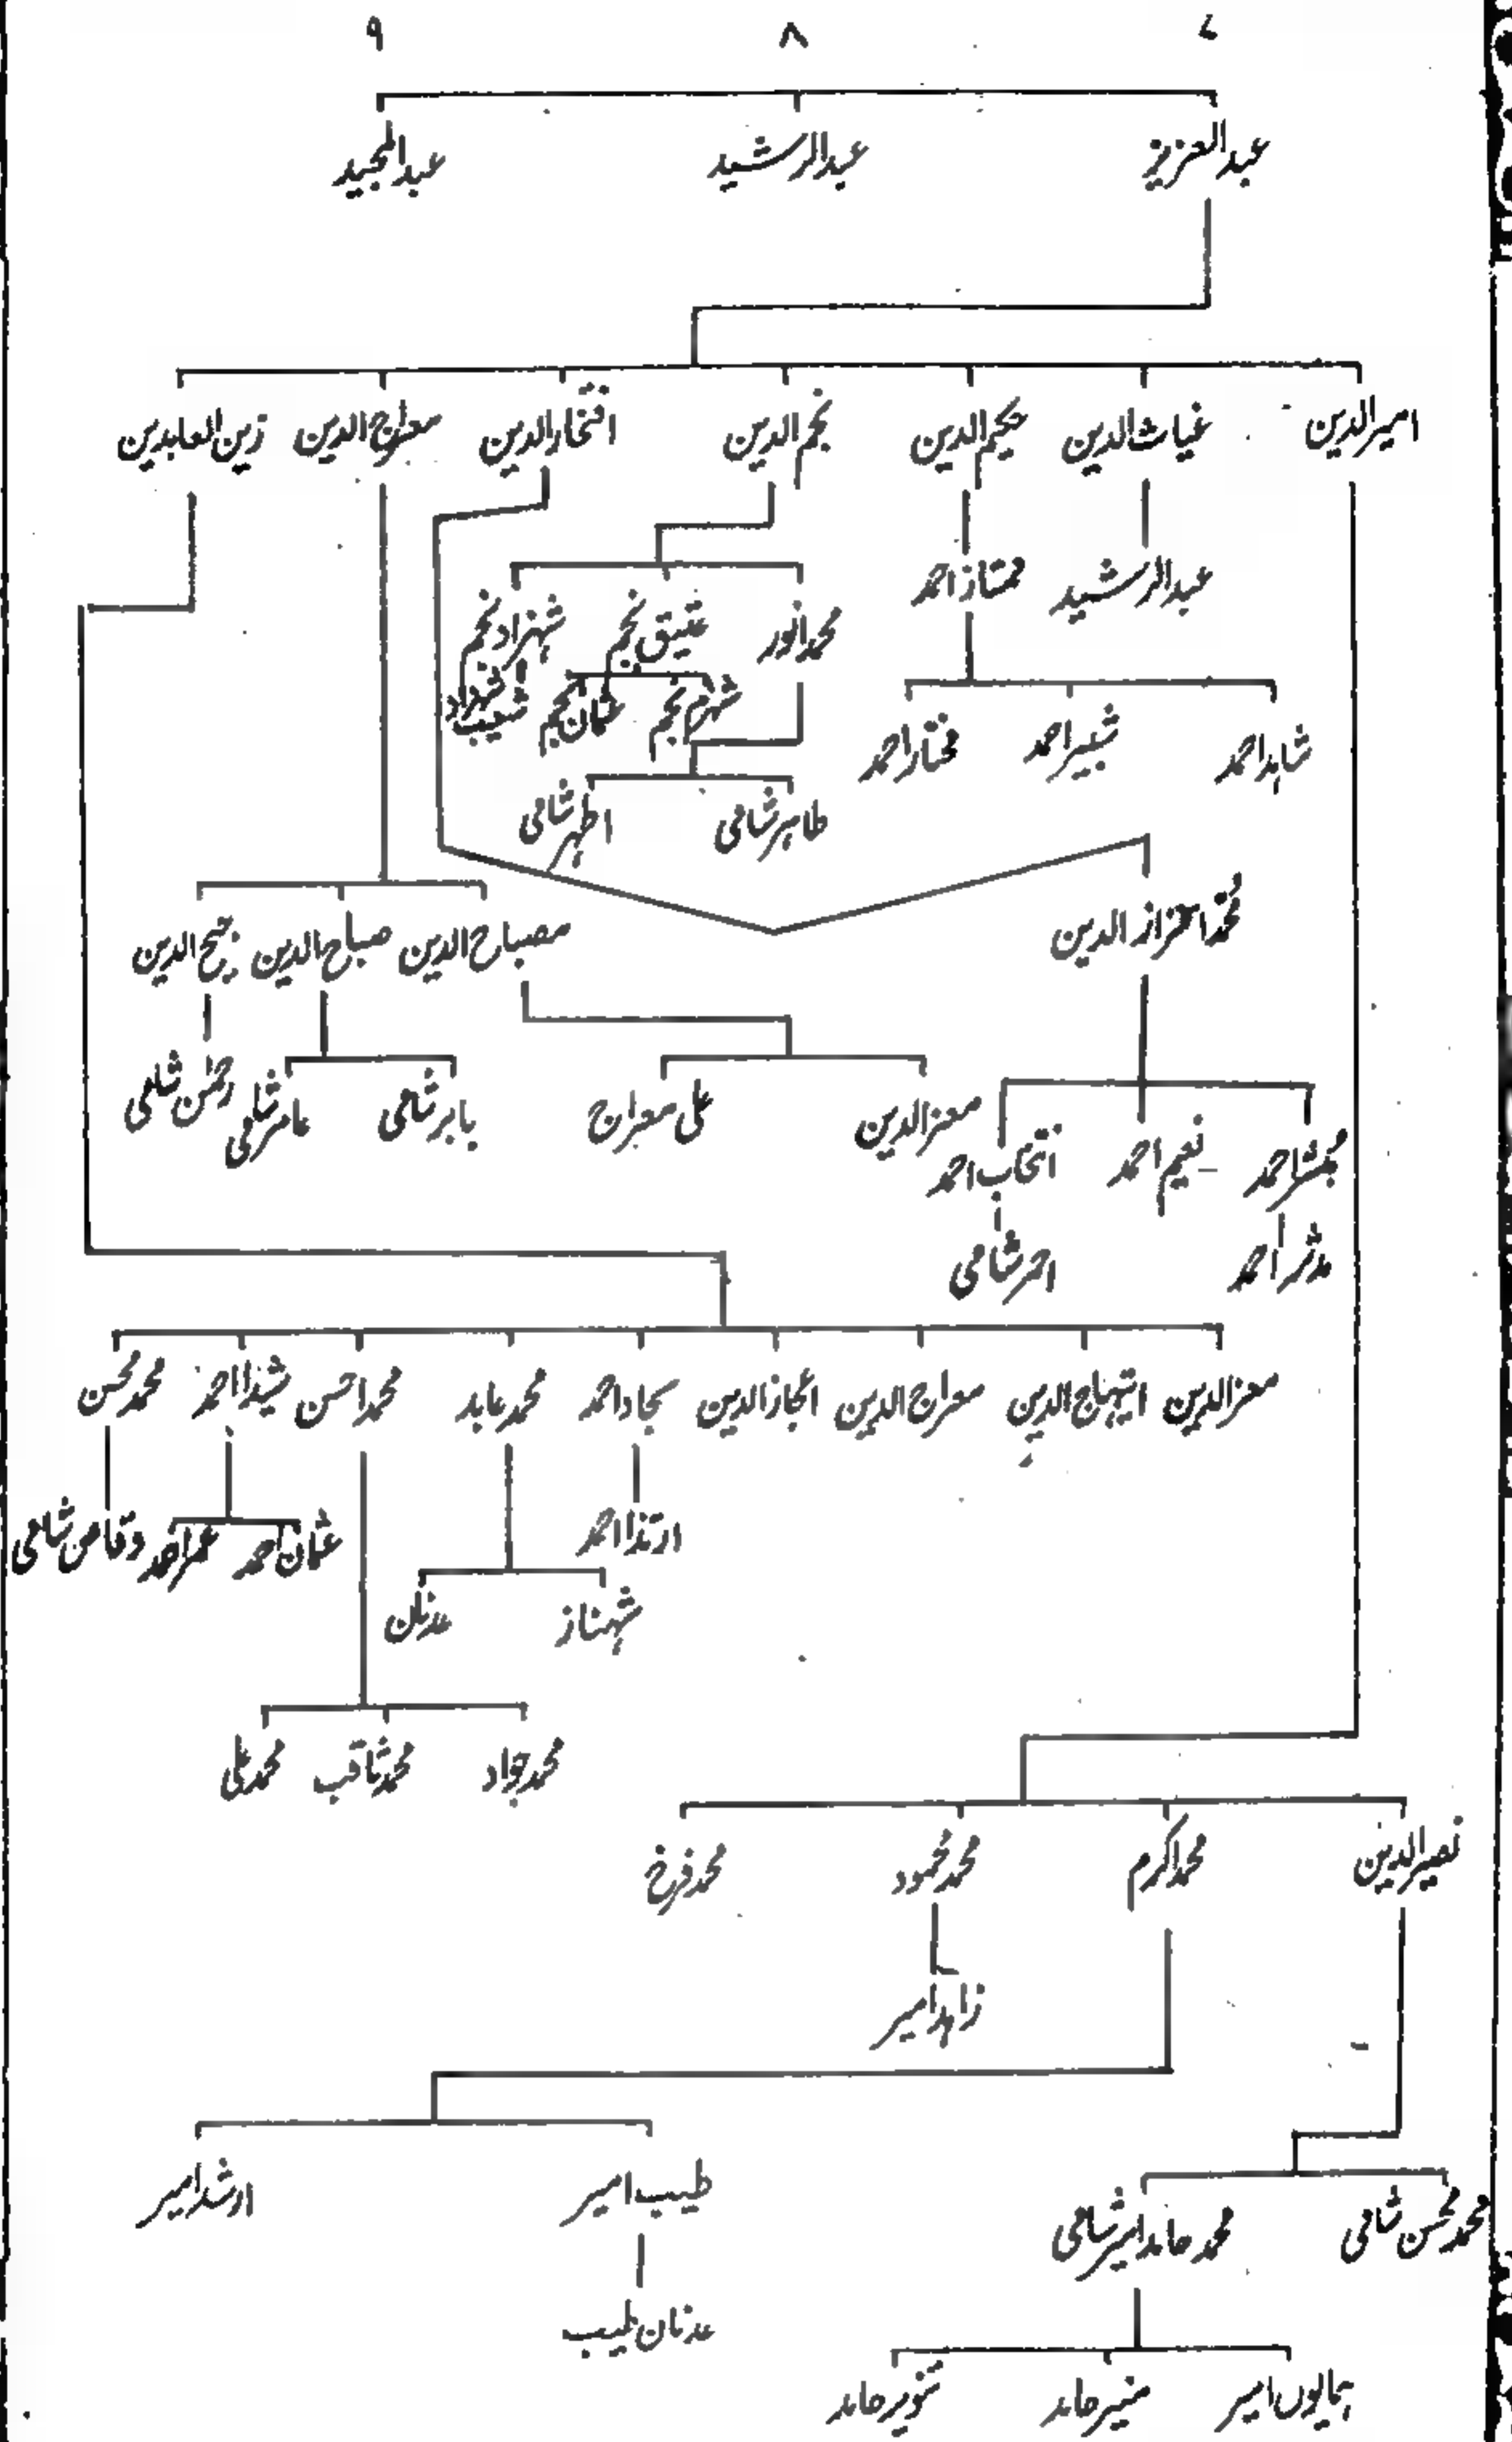 ۷ ۸ ۹
عبدالعزیز عبدالرشید عبدالمجید
امیرالدین غیاث الدین حکیم الدین نجم الدین افتخارالدین معراج الدین زین العابدین
عبدالرشید ممتاز احمد
محمد انور عتیق نجم شہزاد نجم
شاہد احمد شبیر احمد مختار احمد
شہرم نجم عثمان نجم شعیب شہزاد
طاہر شامی اظہر شامی
محمد اعزاز الدین
مصباح الدین صباح الدین ذبیح الدین
معزالدین علی معراج بابر شامی عامر شامی رحمٰن شامی
مبشر احمد نعیم احمد انتخاب احمد
مدثر احمد احمر شامی
معزالدین ابتہاج الدین معراج الدین اعجاز الدین سجاد احمد محمد عابد محمد احسن شیذا احمد محمد محسن
ارتذا احمد عثمان احمد عمر احمد وقاص شامی
شہناز عدنان
محمد جواد محمد ثاقب محمد علی
نصیرالدین محمد اکرم محمد محمود محمد فرخ
زاہد امیر
طیب امیر ارشد امیر
محمد محسن شامی محمد حامد امیر شامی
عدنان طیب
ہمایوں امیر منیر حامد تنویر حامد